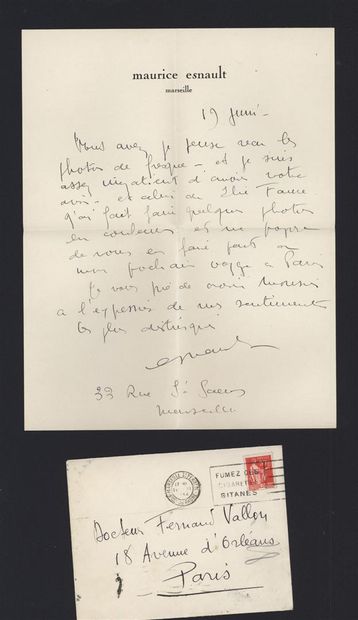 maurice esnault
marseille
19 juin -
Vous avez je pense reçu les
photos de fresque - et je suis
assez impatient d'avoir votre
avis - et celui de Elie Faure
J'ai fait faire quelques photos
en couleurs et me propose
de vous en faire part
mon prochain voyage à Paris
Je vous prie de croire Monsieur
à l'expression de mes sentiments
les plus distingués
esnault
33 Rue St
Marseille
FUMEZ DES
CIGARETTES
GITANES
Docteur Fernand Vallon
18 Avenue d'Orléans
Paris